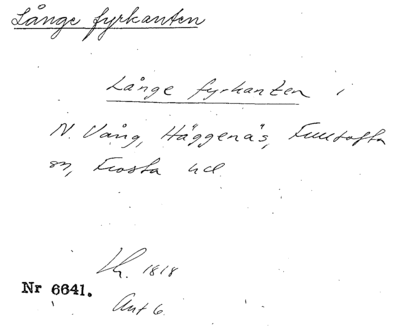 Långe fyrkanten
Långe fyrkanten i
N. Vång, Häggenäs, Fulltofta
sn, Frosta hd.
Lh. 1818
Nr 6641.
Akt 6.